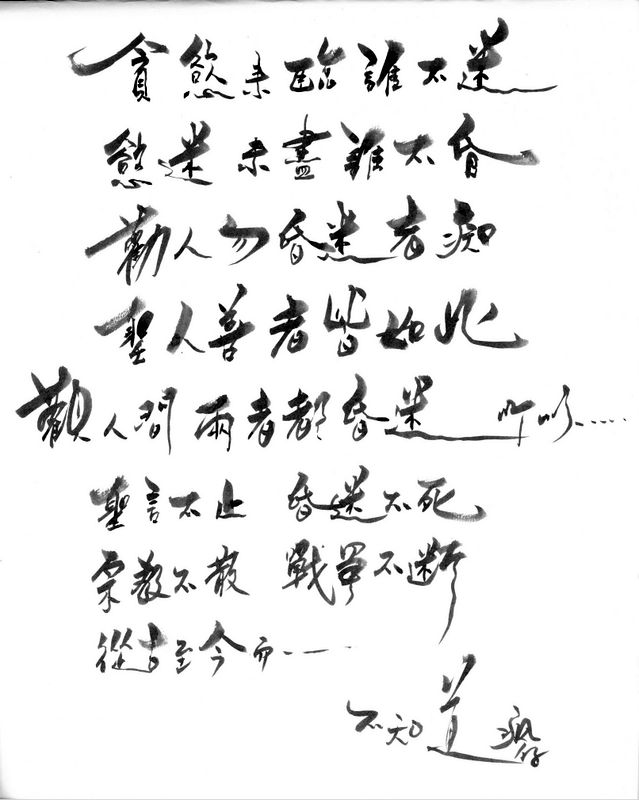 貪慾未臨誰不迷
慾迷未盡誰不昏
勸人勿昏迷者痴
聖人善者皆如此
觀人間兩者都昏迷 所以....
聖言不止 昏迷不死
宗教不散 戰爭不斷
從古至今而.——...
不知道